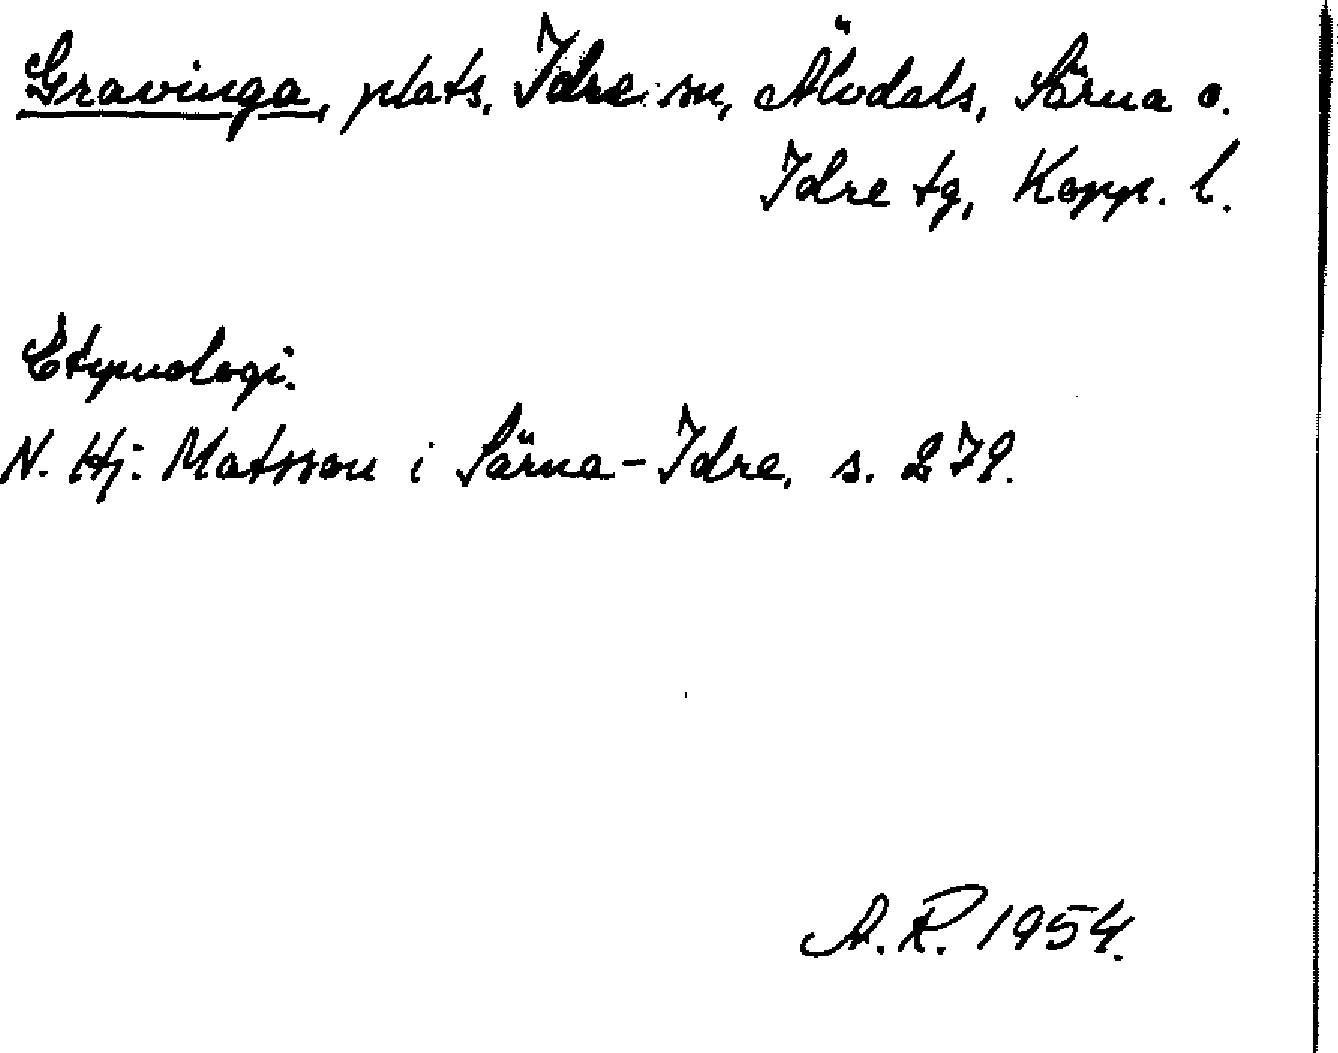 Gravinga, plats, Idre sn, Älvdals, Särna o.
Idre tg, Kopp. l.
Etymologi.
N. Hj. Matsson i Särna-Idre, s. 279.
A. R. 1954.